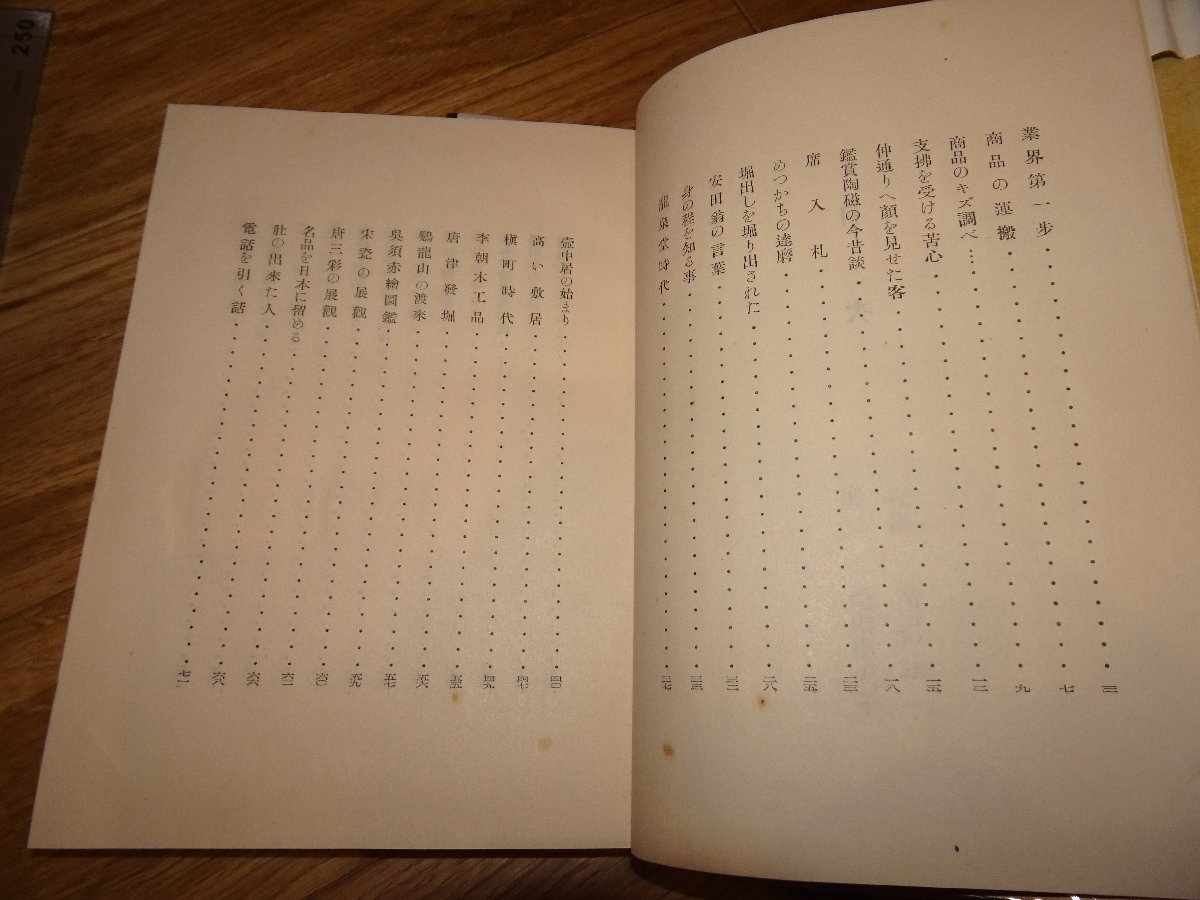 業界第一歩・・・三
商品の運搬・・・七
商品のキズ調べ・・・九
支拂を受ける苦心・・・一二
仲通りへ顔を見せた客・・・一五
鑑賞陶磁の今昔談・・・一八
席入札・・・二三
めつかちの達磨・・・二五
堀出しを堀り出された・・・二八
安田翁の言葉・・・三二
身の程を知る事・・・三三
龍泉堂時代・・・三七
壺中居の始まり・・・四〇
高い敷居・・・四七
槇町時代・・・四九
李朝木工品・・・五五
唐津發堀・・・五六
鷄龍山の渡來・・・五七
呉須赤繪圖鑑・・・五九
宋瓷の展觀・・・六〇
唐三彩の展觀・・・六一
名品を日本に留める・・・六六
肚の出來た人・・・六八
電話を引く話・・・七一
250